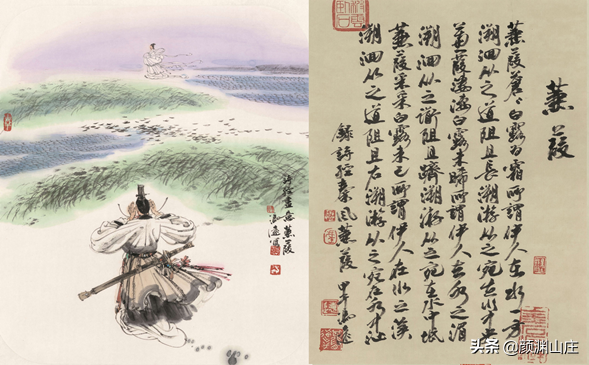 蒹葭
蒹葭蒼〻白露为霜所謂伊人在水一方
溯洄从之道阻且長溯游从之宛在水中央
蒹葭凄凄白露未晞所謂伊人在水之湄
溯洄从之道阻且躋溯游从之宛在水中坻
蒹葭采采白露未已所謂伊人在水之涘
溯洄从之道阻且右溯游从之宛在水中沚
錄詩經秦風蒹葭 甲午馮遠
詩經畫意蒹葭
馮遠寫
头条 @颜渊山庄